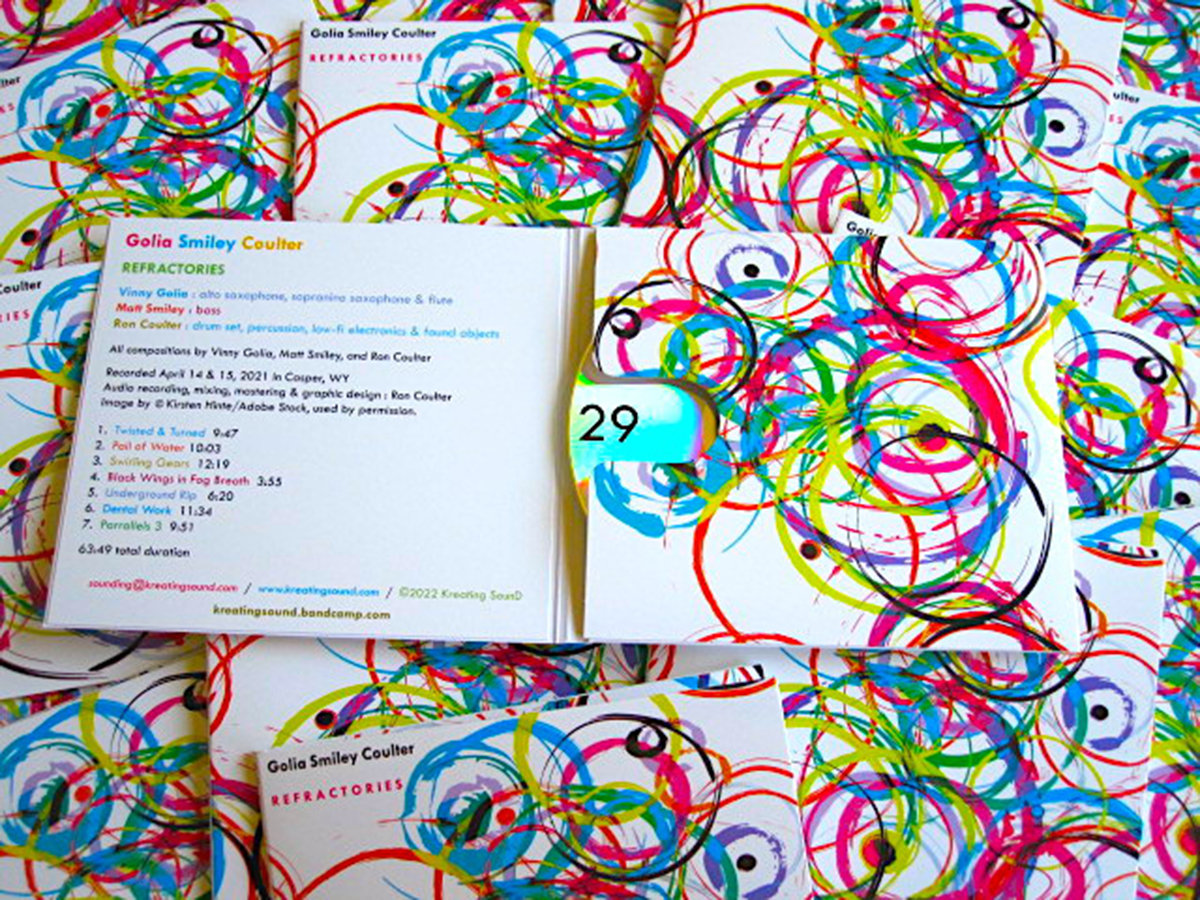 Golia Smiley Coulter
REFRACTORIES
Golia Smiley Coulter
REFRACTORIES
Vinny Golia : alto saxophone, sopranino saxophone & flute
Matt Smiley : bass
Ron Coulter : drum set, percussion, low-fi electronics & found objects
All compositions by Vinny Golia, Matt Smiley, and Ron Coulter
Recorded April 14 & 15, 2021 in Casper, WY
Audio recording, mixing, mastering & graphic design : Ron Coulter
Image by © Kirsten Hinte/Adobe Stock, used by permission.
1. Twisted & Turned 9:47
2. Pail of Water 10:03
3. Swirling Gears 12:19
4. Black Wings in Fog Breath 3:55
5. Underground Rip 6:20
6. Dental Work 11:34
7. Parrallels 3 9:51
63:49 total duration
sounding@kreatingsound.com / www.kreatingsound.com / ©2022 Kreating SounD
kreatingsound.bandcamp.com
29
Golia Smiley Coulter
REFRACTORIES